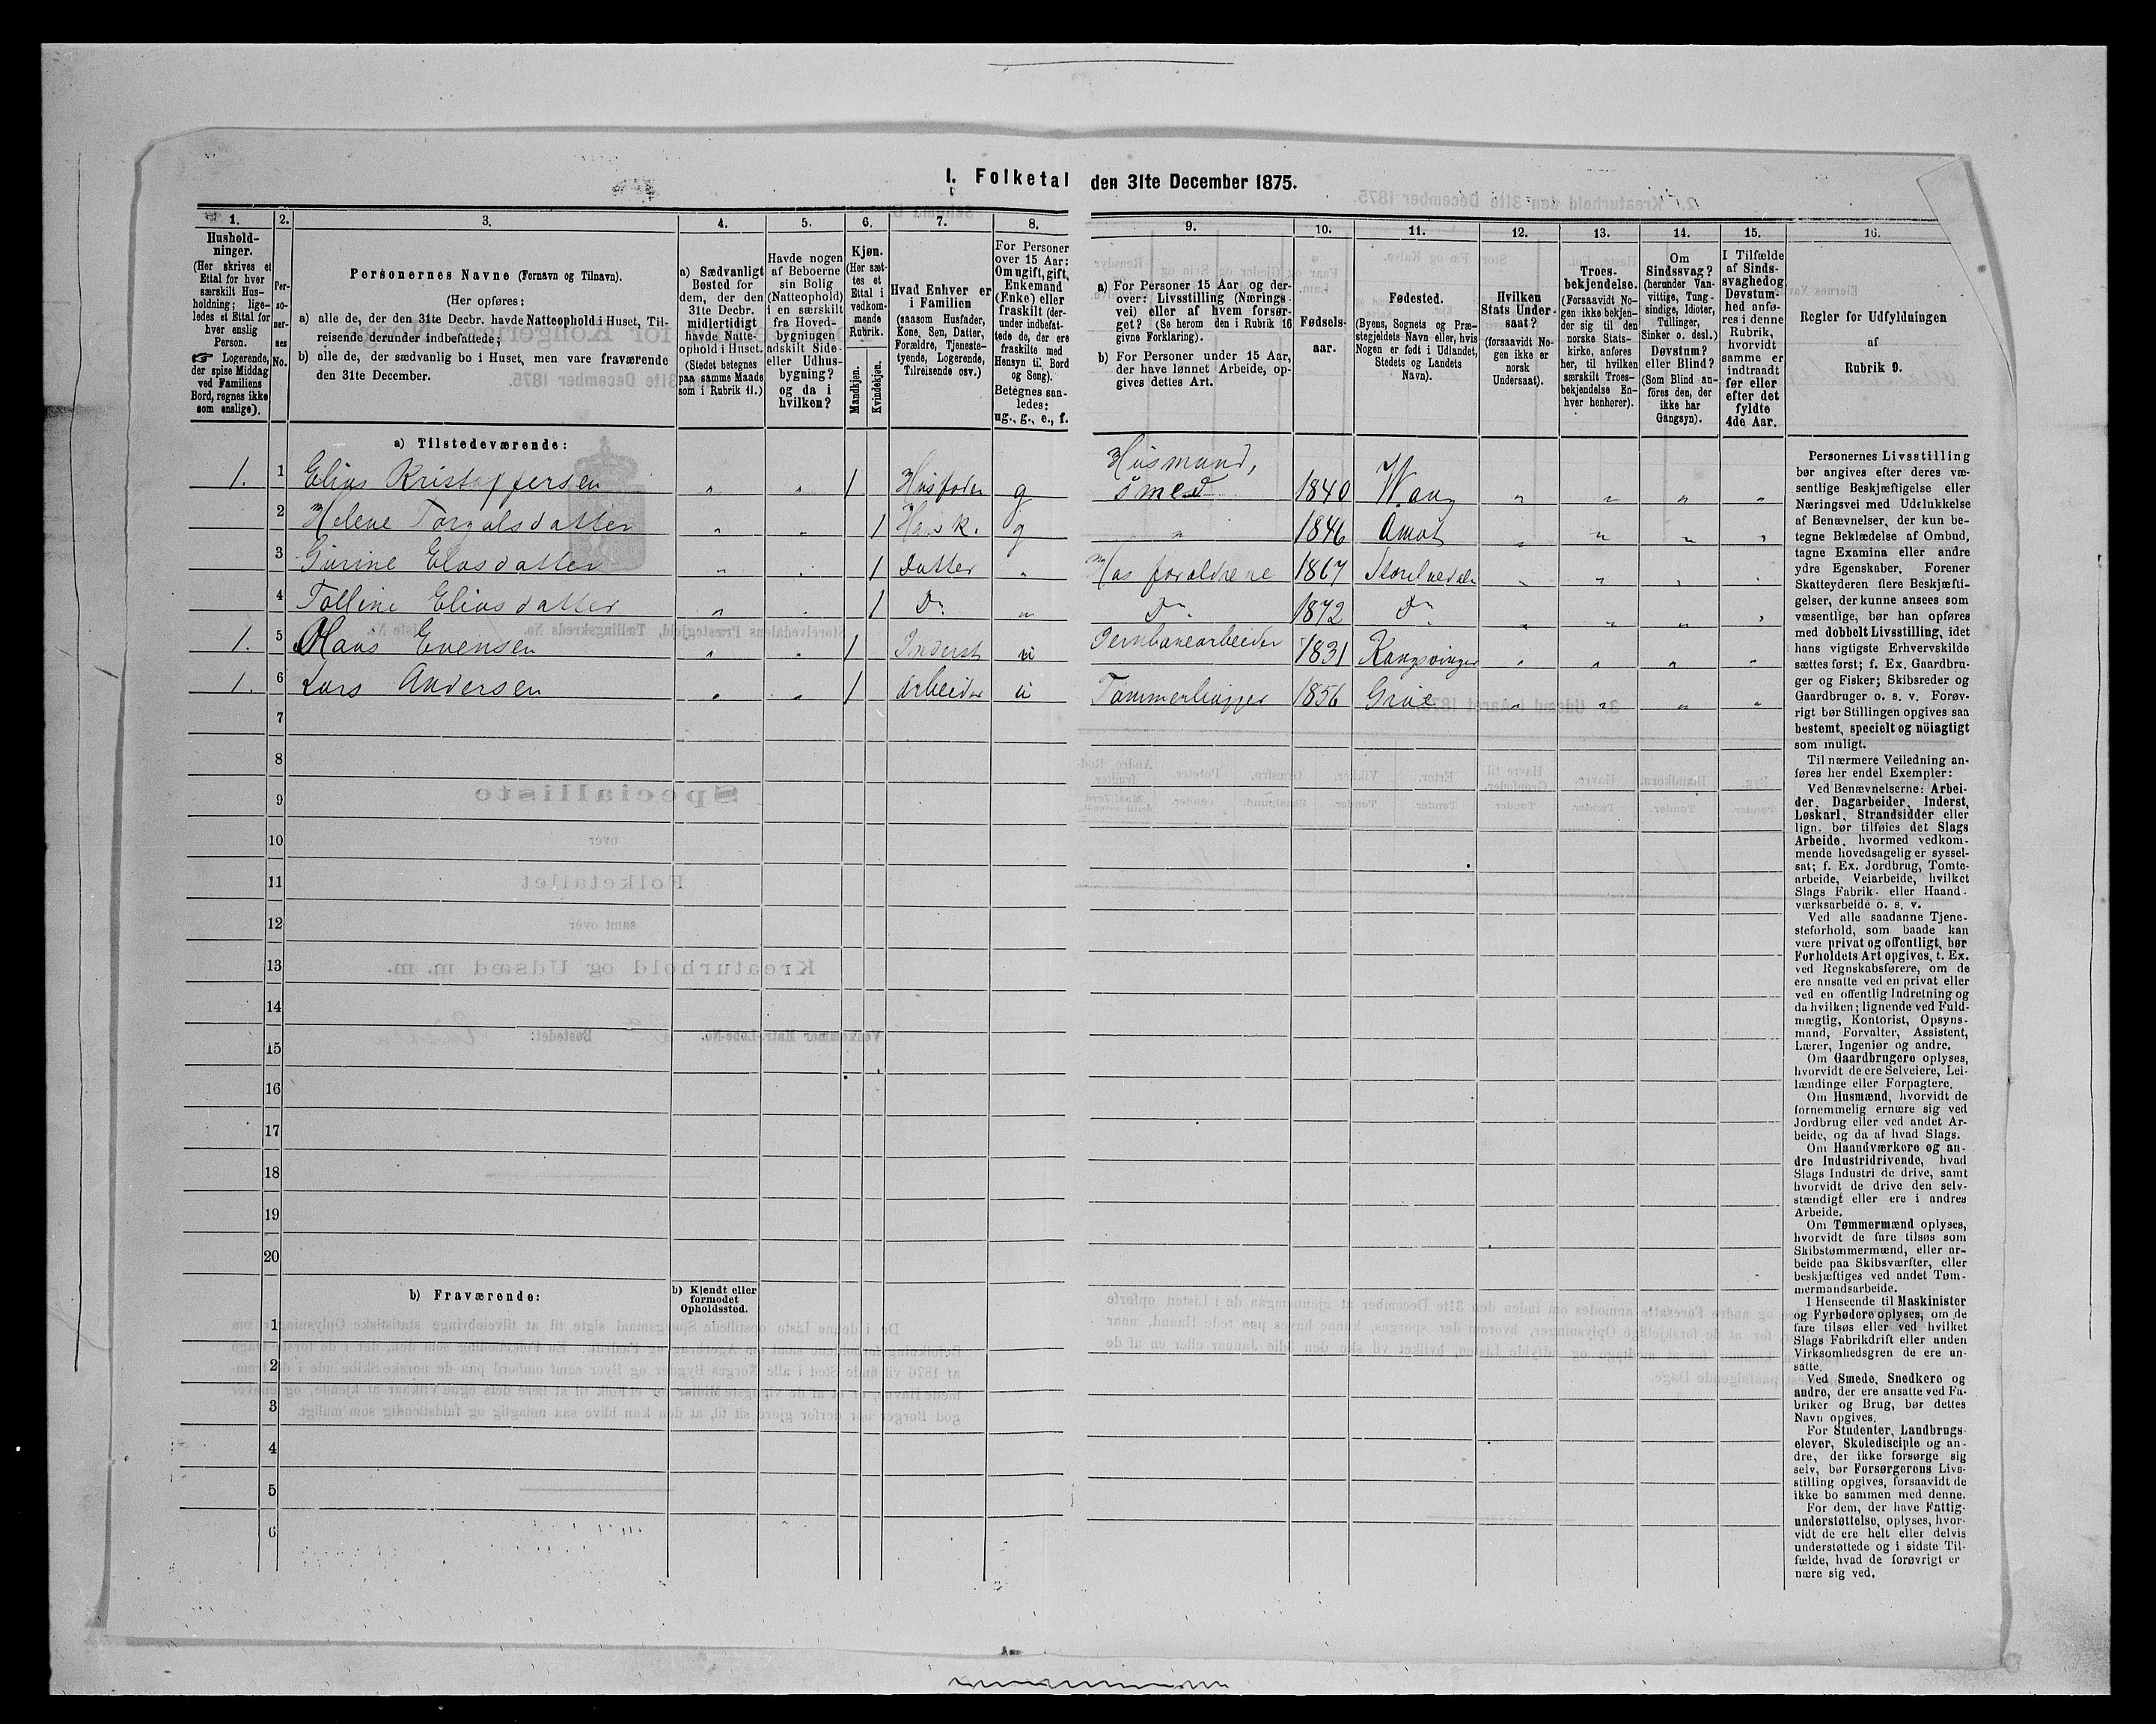 I. Folketal den 31te December 1875.
1. 2. 3. 4. 5. 6. 7. 8. 9. 10. 11. 12. 13. 14. 15. 16.
Hushold-
ninger.
(Her skrives et
Ettal for hver
særskilt Hus-
holdning; lige-
ledes et Ettal for
hver enslig
Person.
☞ Logerende,
der spise Middag
ved Familiens
Bord, regnes ikke
som enslige).
Per-
so-
ner-
nes
No.
Personernes Navne (Fornavn og Tilnavn).
(Her opføres:
a) alle de, der den 31te Decbr. havde Natteophold i Huset, Til-
reisende derunder indbefattede;
b) alle de, der sædvanlig bo i Huset, men vare fraværende
den 31te December.
a) Sædvanligt
Bosted for
dem, der den
31te Decbr.
midlertidigt
havde Natte-
ophold i Huset.
(Stedet betegnes
paa samme Maade
som i Rubrik 11.)
Havde nogen
af Beboerne
sin Bolig
(Natteophold)
i en særskilt
fra Hoved-
bygningen
adskilt Side-
eller Udhus-
bygning?
og da i
hvilken?
Kjøn.
(Her sæt-
tes et
Ettal i
vedkom-
mende
Rubrik.
Mandkjøn.
Kvindekjøn.
Hvad Enhver er
i Familien
(saasom Husfader,
Kone, Søn, Datter,
Forældre, Tjeneste-
tyende, Logerende,
Tilreisende osv.)
For Personer
over 15 Aar:
Om ugift, gift,
Enkemand
(Enke) eller
fraskilt (der-
under indbefat-
tede de, der ere
fraskilte med
Hensyn til Bord
og Seng).
Betegnes saa-
ledes:
ug., g., e., f.
a) For Personer 15 Aar og der-
over: Livsstilling (Nærings-
vei) eller af hvem forsør-
get? (Se herom den i Rubrik 16
givne Forklaring).
b) For Personer under 15 Aar,
der have lønnet Arbeide, op-
gives dettes Art.
Fødsels-
aar.
Fødested.
(Byens, Sognets og Præ-
stegjeldets Navn eller, hvis
Nogen er født i Udlandet,
Stedets og Landets
Navn).
Hvilken
Stats Under-
saat?
(forsaavidt No-
gen ikke er
norsk
Undersaat).
Troes-
bekjendelse.
(Forsaavidt No-
gen ikke bekjen-
der sig til den
norske Stats-
kirke, anføres
her, til hvilken
særskilt Troes-
bekjendelse En-
hver henhører).
Om
Sindssvag?
(herunder Van-
vittige, Tung-
sindige, Idioter,
Tullinger,
Sinker o. desl.)
Døvstum?
eller Blind?
(Som Blind an-
föres den, der
ikke har
Gangsyn).
I Tilfælde
af Sinds-
svaghed og
Døvstum-
hed anfø-
res i denne
Rubrik,
hvorvidt
samme er
indtraadt
før eller
efter det
fyldte
4de Aar.
Regler for Udfyldningen
af
Rubrik 9.
a) Tilstedeværende:
1. 1 Elias Kristoffersen " " 1 Husfader g Husmand, Smed 1840 Wang " " " "
2 Helene Torgalsdatter " " 1 Husk. g " 1846 Amot " " " "
3 Gurine Eliasdatter " " 1 Datter " Hos foraldrene 1867 Storelvedalen " " " "
4 Polline Eliasdatter " " 1 Do " Do 1872 Do " " " "
1. 5 Hans Evensen " " 1 Inderst u Jernbanearbeider 1831 Kongsvinger " " " "
1. 6 Lars Andersen " " 1 Arbeider u Tømmerhugger 1856 Grue " " " "
7
8
9
10
11
12
13
14
15
16
17
18
19
20
b) Fraværende:
b) Kjendt eller
formodet
Opholdssted.
1
2
3
4
5
6
Personernes Livsstilling
bør angives efter deres væ-
sentlige Beskjæftigelse eller
Næringsvei med Udelukkelse
af Benævnelser, der kun be-
tegne Beklædelse af Ombud,
tagne Examina eller andre
ydre Egenskaber. Forener
Skatteyderen flere Beskjæfti-
gelser, der kunne ansees som
væsentlige, bør han opføres
med dobbelt Livsstilling, idet
hans vigtigste Erhvervskilde
sættes først; f. Ex. Gaardbru-
ger og Fisker; Skibsreder og
Gaardbruger o. s. v. Forøv-
rigt bør Stillingen opgives saa
bestemt, specielt og nöiagtigt
som muligt.
Til nærmere Veiledning an-
føres her endel Exempler:
Ved Benævnelserne: Arbei-
der, Dagarbeider, Inderst,
Løskarl, Strandsidder eller
lign. bør tilføies det Slags
Arbeide, hvormed vedkom-
mende hovedsagelig er syssel-
sat; f. Ex. Jordbrug, Tomte-
arbeide, Veiarbeide, hvilket
Slags Fabrik- eller Haand-
værksarbeide o. s. v.
Ved alle saadanne Tjene-
steforhold, som baade kan
være privat og offentligt, bør
Forholdets Art opgives, t. Ex.
ved Regnskabsførere, om de
ere ansatte ved en privat eller
ved en offentlig Indretning og
da hvilken; lignende ved Fuld-
mægtig, Kontorist, Opsyns-
mand, Forvalter, Assistent,
Lærer, Ingeniør og andre.
Om Gaardbrugere oplyses,
hvorvidt de ere Selveiere, Lei-
lændinge eller Forpagtere.
Om Husmænd, hvorvidt de
fornemmelig ernære sig ved
Jordbrug eller ved andet Ar-
beide, og da af hvad Slags.
Om Haandværkere og an-
dre Industridrivende, hvad
Slags Industri de drive, samt
hvorvidt de drive den selv-
stændigt eller ere i andres
Arbeide.
Om Tømmermænd oplyses,
hvorvidt de fare tilsøs som
Skibstømmermænd, eller ar-
beide paa Skibsværfter, eller
beskjæftiges ved andet Tøm-
mermandsarbeide.
I Henseende til Maskinister
og Fyrbødere oplyses, om de
fare tilsøs eller ved hvilket
Slags Fabrikdrift eller anden
Virksomhedsgren de ere an-
satte.
Ved Smede, Snedkere og
andre, der ere ansatte ved Fa-
briker og Brug, bør dettes
Navn opgives.
For Studenter, Landbrugs-
elever, Skoledisciple og an-
dre, der ikke forsørge sig
selv, bør Forsørgerens Livs-
stilling opgives, forsaavidt de
ikke bo sammen med denne.
For dem, der have Fattig-
understøttelse, oplyses, hvor-
vidt de ere helt eller delvis
understøttede og i sidste Til-
fælde, hvad de forøvrigt er
nære sig ved.